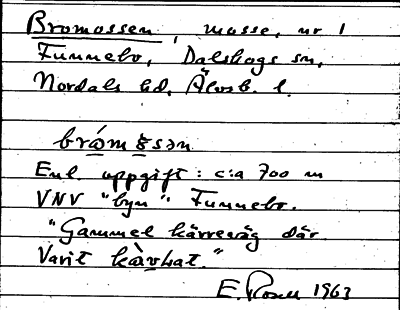 Bromossen, mosse, nr 1
Funnebo, Dalskogs sn,
Nordals hd. Älvsb. l.
bråm
Enl. uppgift: c:a 700 m
VNV "byn" Funnebo.
"Gammel kärreväg där
Varit kavlat."
E. Rosell 1963